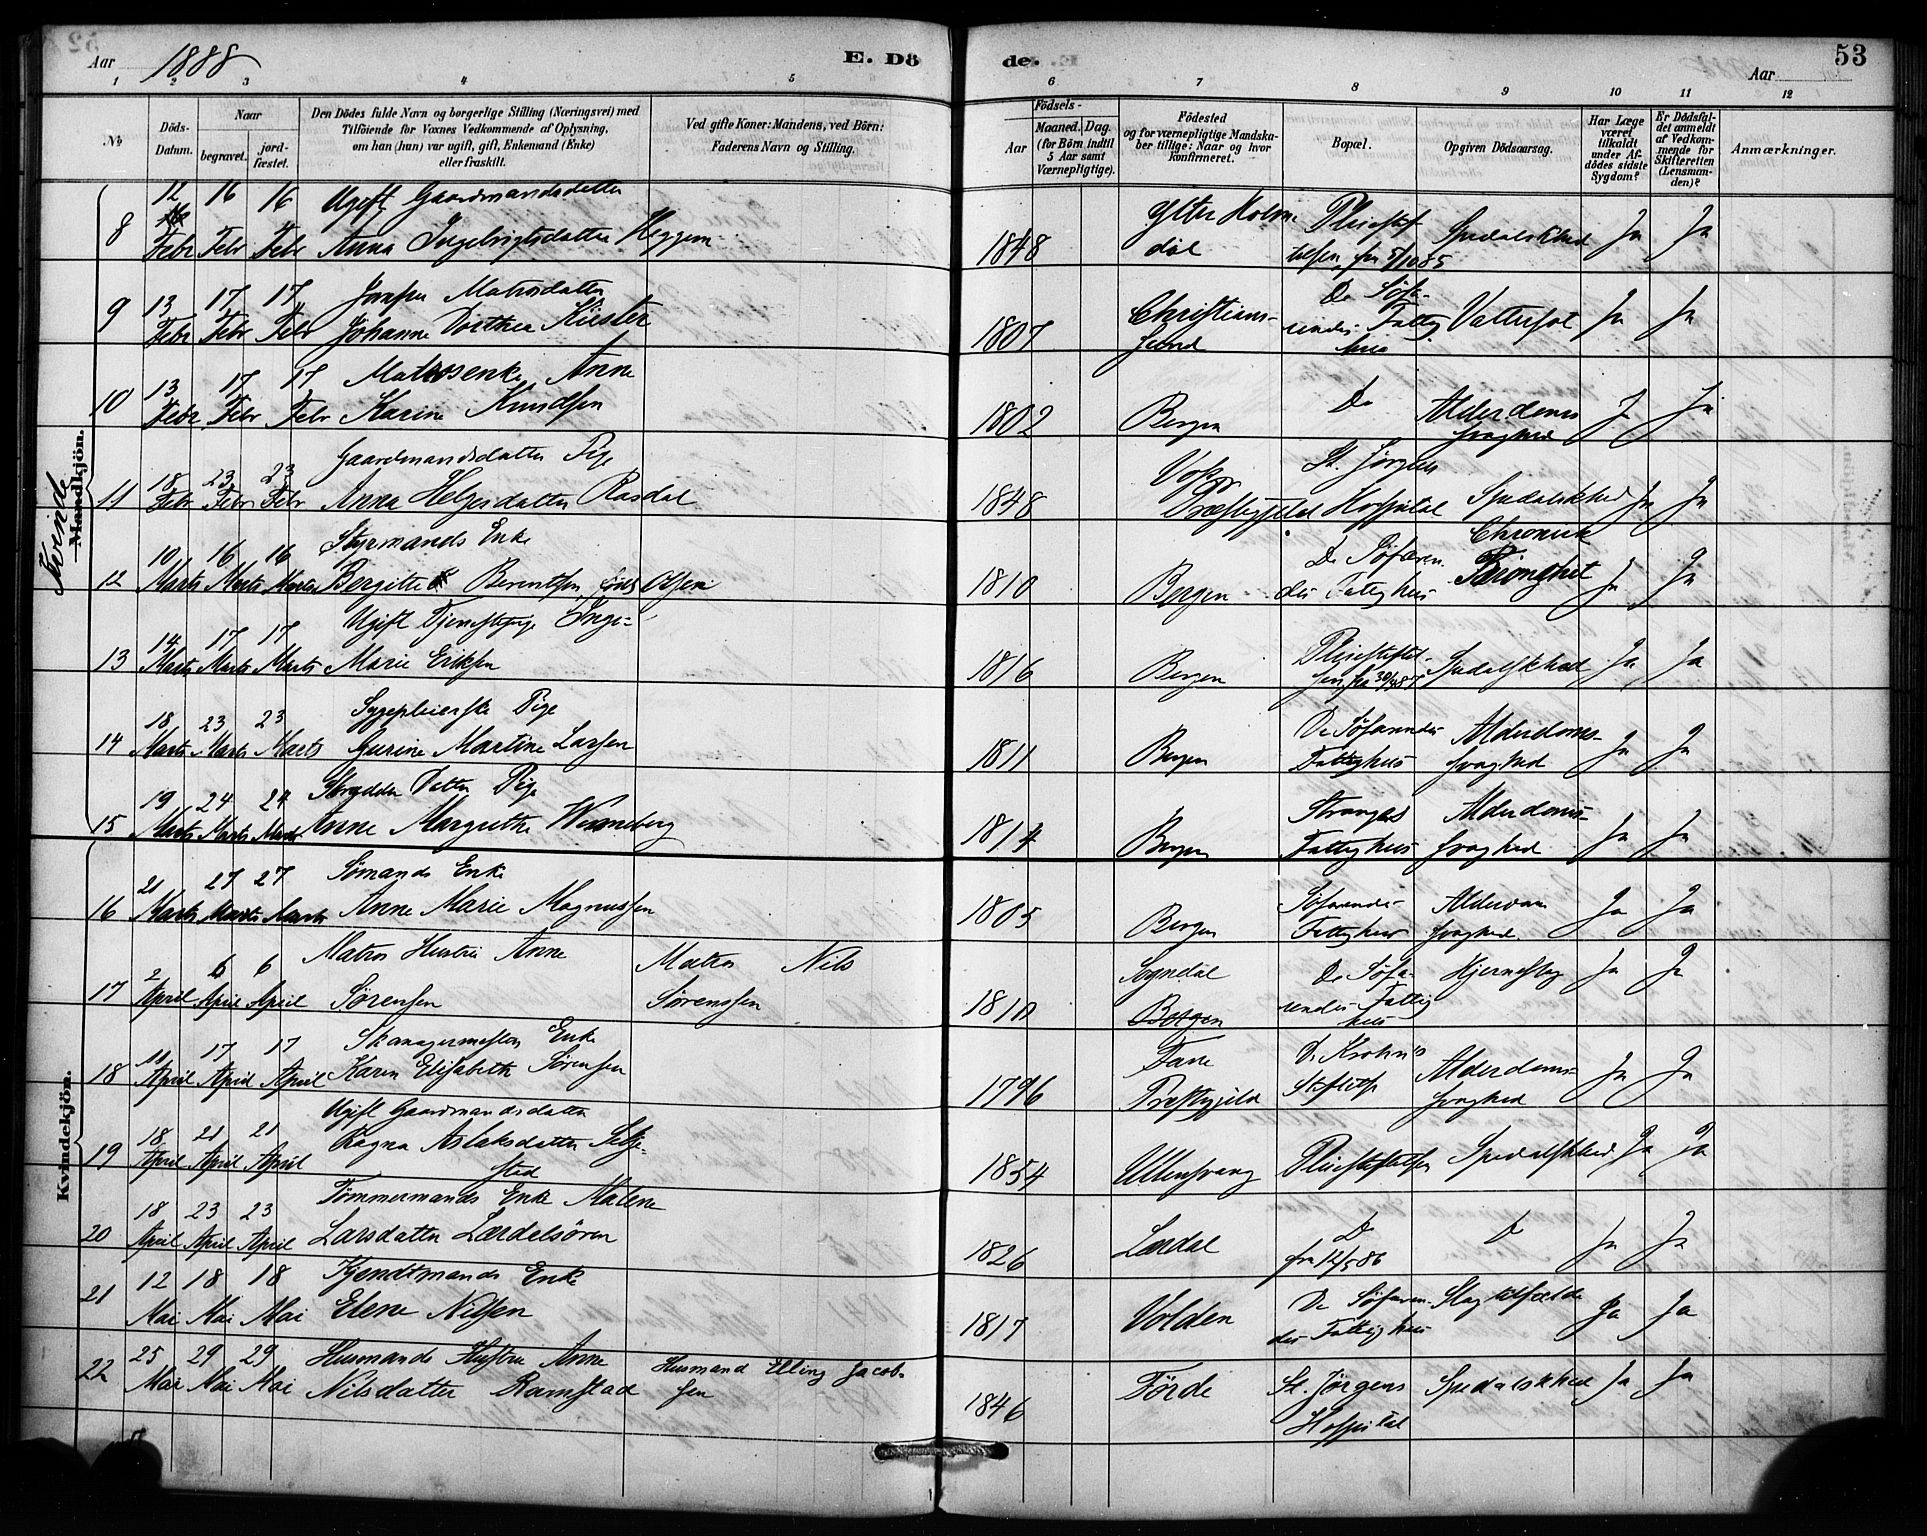 Aar 1888
E. Dö
de.
53
Aar
1 2 3 4 5 6 7 8 9 10 11 12
No
Döds-Datum.
Naar
begravet.
jord-fæstet.
Den Dödes fulde Navn og borgerlige Stilling (Næringsvei) med
Tilföiende for Voxnes Vedkommende af Oplysning,
om han (hun) var ugift, gift, Enkemand (Enke)
eller fraskilt.
Ved gifte Koner: Mandens, ved Börn:
Faderens Navn og Stilling.
Födsels-
Aar
Maaned. Dag.
(for Börn indtil
5 Aar samt
Værnepligtige).
Födested
og for værnepligtige Mandska-
ber tillige: Naar og hvor
konfirmeret.
Bopæl.
Opgiven Dödsaarsag.
Har Læge
været
tilkaldt
under Af-
dödes sidste
Sygdom?
Er Dödsfal-
det anmeldt
af Vedkom-
mende for
Skifteretten
(Lensman-
den)?
Anmærkninger.
Kvinde
Mandkjön.
Kvindekjön.
8 12 Febr 16 Febr 16 Febr Ugift Gaardmandsdatter
Anna Ingebrigtsdatter Heggem 1848 Ytter Holm
dal Pleiestif
telsen fra 5/10 85 Spedalskhed Ja Ja
9 13 Febr 17 Febr 17 Febr Jomfru Matrosdatter
Johanne Dorthea Küster 1807 Christians-
sund De Söfa-
rendes Fattig
hus Vattersot Ja Ja
10 13 Febr 17 Febr 17 Febr Matrosenke Anne
Karine Knudsen 1802 Bergen Do Alderdoms
svaghed Ja Ja
11 18 Febr 23 Febr 23 Febr Gaardmandsdatter Pige
Anna Helgesdatter Rasdal 1848 Voss
Præstegjeld St. Jörgens
Hospital Spedalskhed Ja Ja
12 10 Marts 16 Marts 16 Marts Styrmands Enke
Bergitte Berentsen, föds Olsen 1810 Bergen De Söfaren
des Fattighus Chronisk
Ja Ja
13 14 Marts 17 Marts 17 Marts Ugift Tjenestepige Inge-
Marie Eriksen 1816 Bergen Pleiestiftel-
sen fra Spedalskhed Ja Ja
14 18 Marts 23 Marts 23 Marts Sygepleierske Pige
Gurine Martine Larsen 1811 Bergen De Söfarendes
Fattighus Alderdoms-
svaghed Ja Ja
15 19 Marts 24 Marts 24 Marts Skrædder Datter Pige
Anne Margrethe Wenneberg 1814 Bergen Stranges
Fattighus Alderdoms-
svaghed Ja Ja
16 21 Marts 27 Marts 27 Marts Sömands Enke
Anne Marie Magnussen 1805 Bergen Söfarendes
Fattighus Alderdoms
svaghed. Ja Ja
17 2 April 6 April 6 April Matros Hustru Anne
Sörensen Matros Nils
Sörenssen 1810 Sogndal
Bergen De Söfa-
rendes Fattig
hus Hjerneslag Ja Ja
18 10 April 17 April 17 April Enke
Karen Elisabeth Sörensen 1796 Fane
Præstegjeld De Krohns
Stiftelse Alderdoms-
svaghed Ja Ja
19 18 April 21 April 21 April Ugift Gaardmandsdatter
Ragna Aslaksdatter Selje-
stad 1854 Ullensvang Pleiestiftelsen Spedalskhed Ja Ja
20 18 April 23 April 23 April Tömmermands Enke Malene
Larsdatter Lærdelsören 1826 Lærdal Do
fra 12/5 86 Do Ja Ja
21 12 Mai 18 Mai 18 Mai Kjendtmands Enke
Elene Nilsen 1817 Volden De Söfaren-
des Fattighus Slagtilfælde Ja Ja
22 25 Mai 29 Mai 29 Mai Husmands Hustru Anne
Nilsdatter Ramstad Husmand Elling Jacob-
sen 1846 Förde St. Jörgens
Hospital Spedalskhed Ja Ja